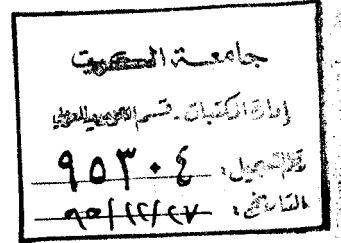 جامعة الكويت
إدارة المكتبات - قسم
رقم التسجيل: ٩٥٣٠٤
التاريخ: ٩٥/١٢/٢٧